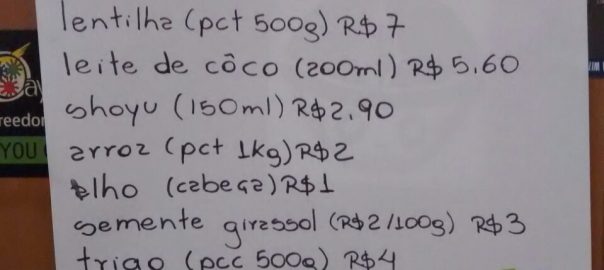 lentilha (pct 500g) R$ 7
leite de côco (200ml) R$ 5.60
shoyu (150ml) R$2.90
arroz (pct 1kg) R$2
alho (cabeça) R$1
semente girassol (R$2/100g) R$3
trigo (pcc 500g) R$4
YOU